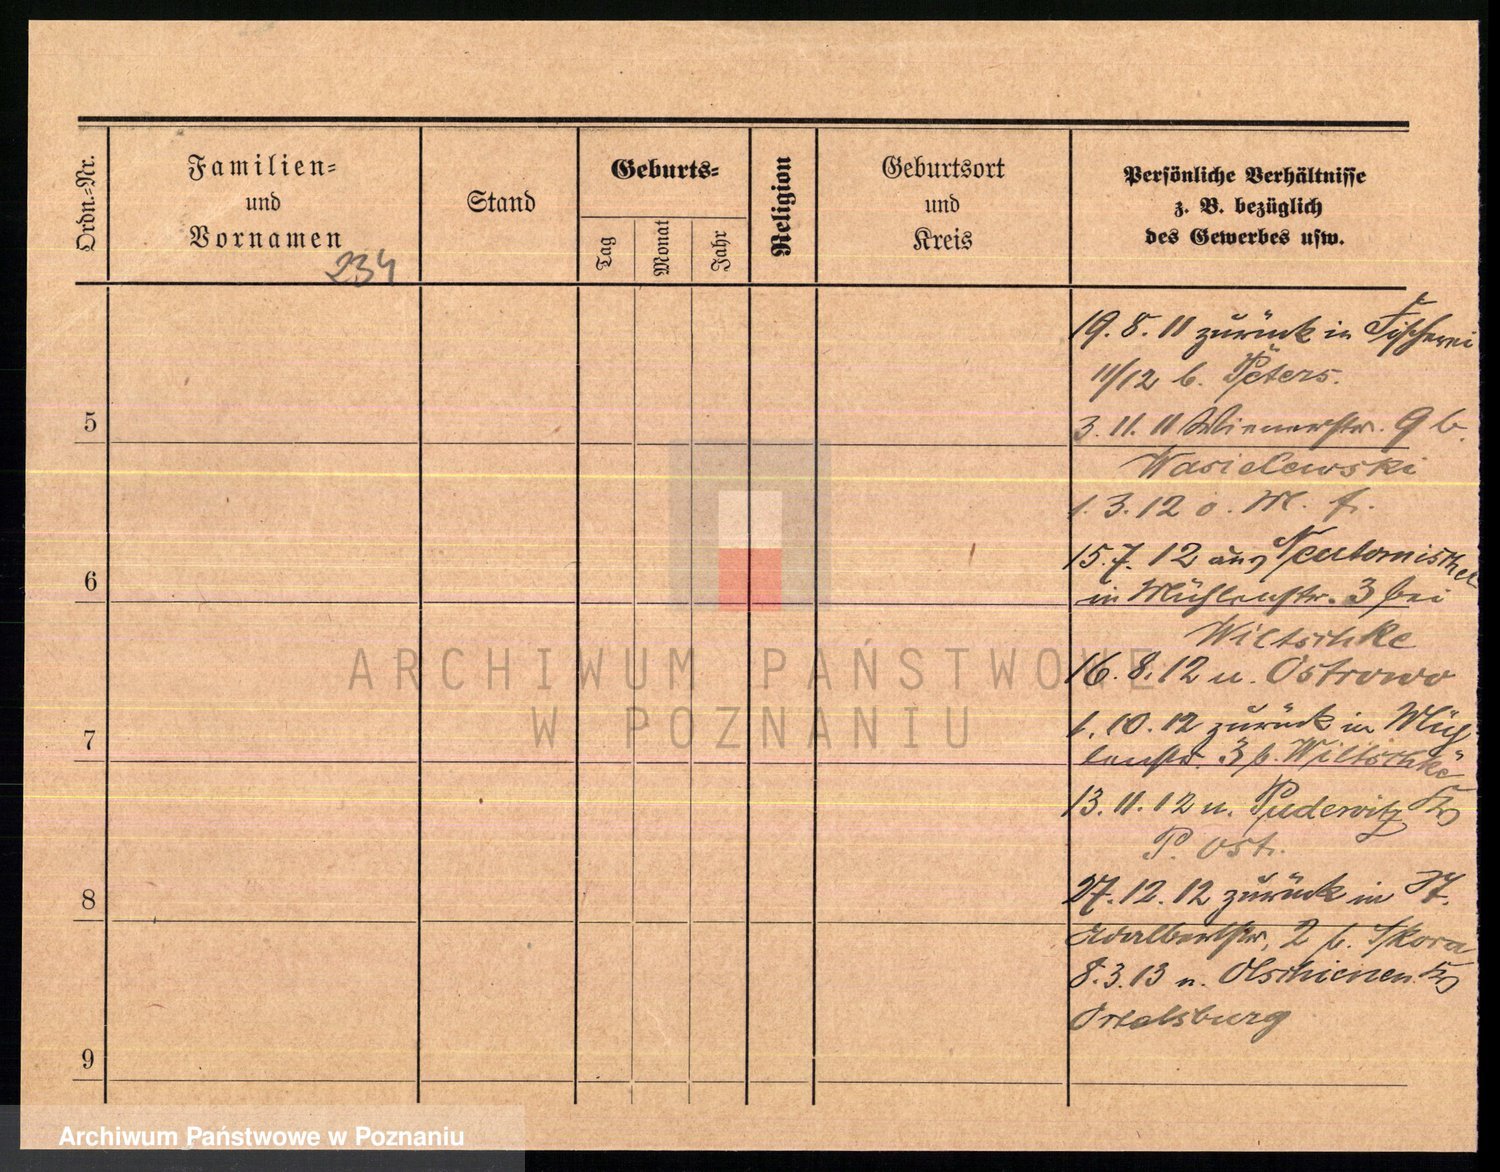 Ordn.-Nr.
Familien-
und
Vornamen
234
Stand
Geburts-
Tag
Monat
Jahr
Religion
Geburtsort
und
Kreis
Persönliche Verhältnisse
z. B. bezüglich
des Gewerbes usw.
19. 8. 11 zurück in Fischerei
11/12 b. Peters.
3. 11. 11 Wienerstr. 9 b.
5
Wasielewski
1. 3. 12 o. M. f.
15. 7. 12 aus Neutomischel
6
in Mühlenstr. 3 bei
Wiltschke
16. 8. 12 n. Ostrowo
1. 10. 12 zurück in Müh-
7
lenstr. 3 b. Wiltschke
13. 11. 12 n. Pudewitz Krs
P. Ost.
27. 12. 12 zurück in St.
8
Adalbertstr. 2 b. Skora
8. 3. 13 n. Olschienen Krs
Ortelsburg
9
ARCHIWUM PAŃSTWOWE
W POZNANIU
Archiwum Państwowe w Poznaniu